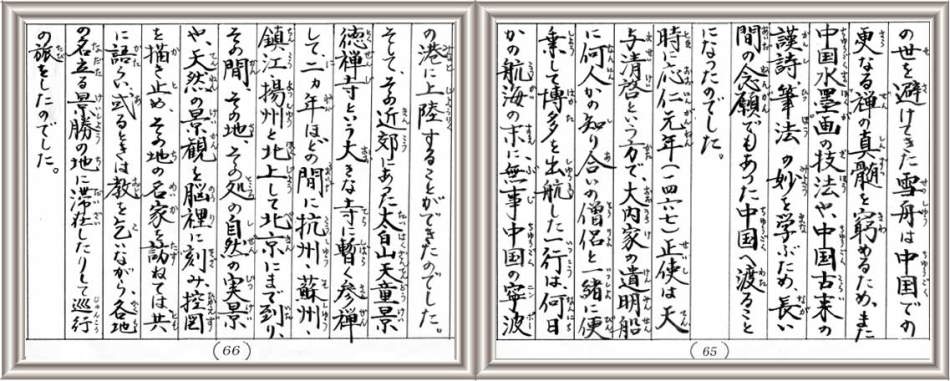 の世を避けてきた雪舟は中国での
更なる禅の真髄を窮めるため、また
中国水墨画の技法や、中国古来の
謹詩、筆法の妙を学ぶため、長い
間の念願でもあった中国へ渡ること
になったのでした。
時に応仁元年(一四六七)正使は天
与清啓という方で、大内家の遣明船
に何人かの知り合いの僧侶と一緒に便
乗して博多を出航した一行は、何日
かの航海の末に、無事中国の寧波
(65)
の港に上陸することができたのでした。
そして、その近郊にあった太白山天童景
徳禅寺という大きな寺に暫く参禅
して、二ヵ年ほどの間に杭州、蘇州
鎮江、揚州と北上して北京にまで到り、
その間、その地、その処の自然の実景
や、天然の景観を脳裡に刻み、控図
を描き止め、その地の名家を訪ねては共
に語らい、或るときは教えを乞いながら、各地
の名立る景勝の地に滞在したりして巡行
の旅をしたのでした。
(66)